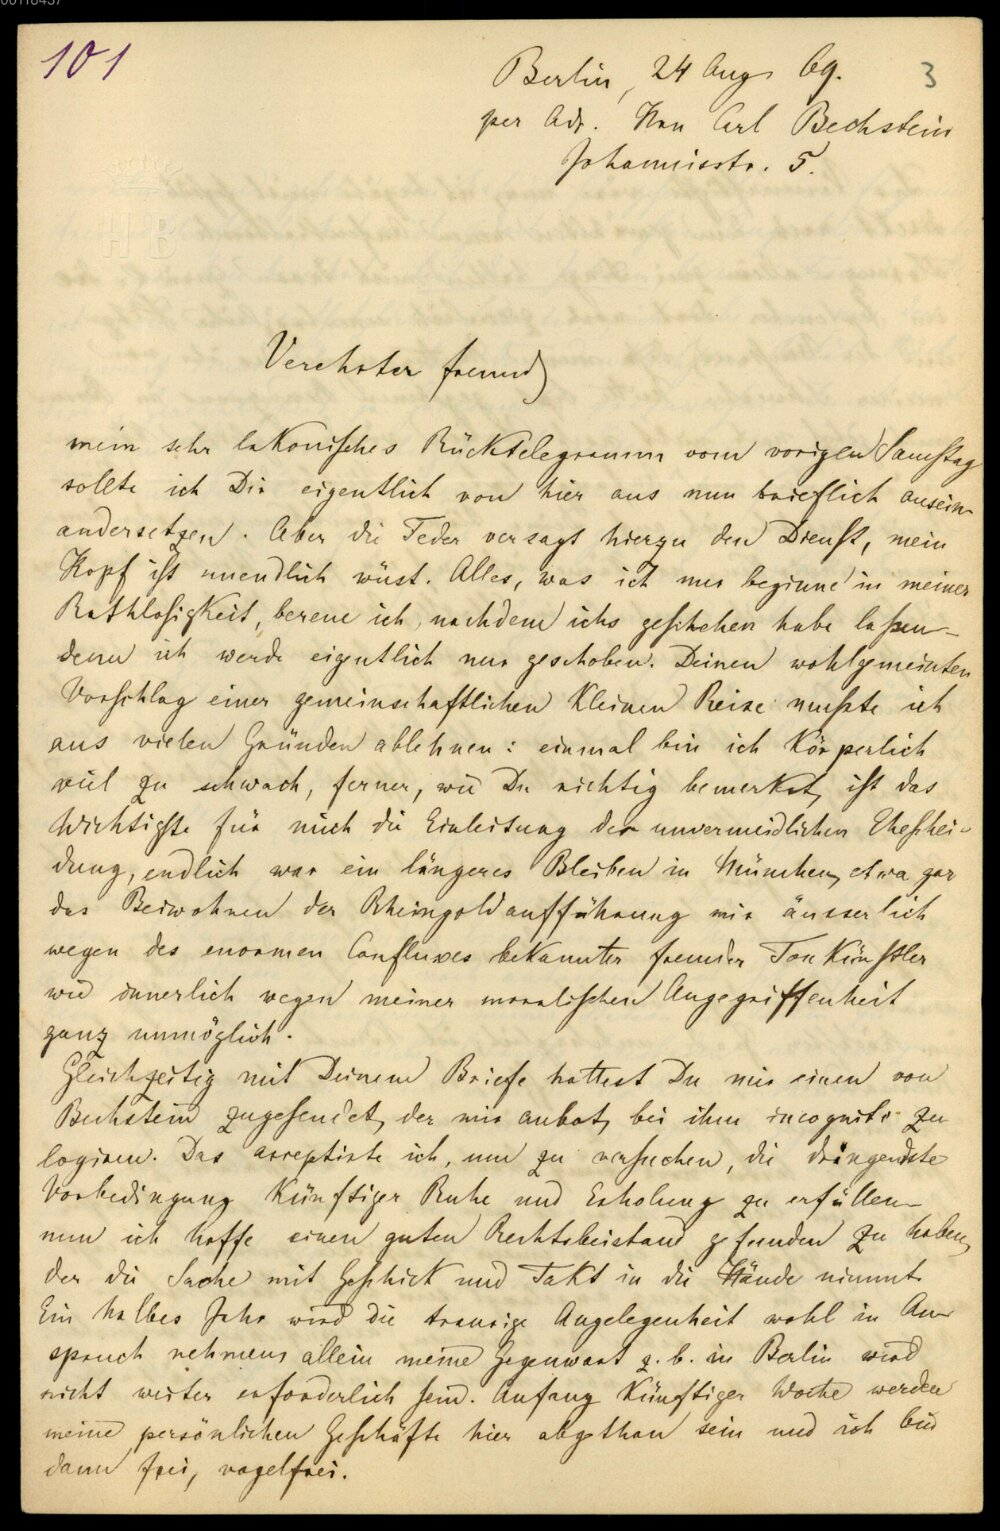 00118437
101
3
Berlin, 24 Aug 69.
per Adr. Herrn Carl Bechstein
Johannisstr. 5.
HB
Verehrter Freund
mein sehr lakonisches Rücktelegramm vom vorigen Samstag
sollte ich Dir eigentlich von hier aus nun brieflich ausein-
andersetzen. Aber die Feder versagt hierzu den Dienst, mein
Kopf ist unendlich wüst. Alles, was ich nur beginne in meiner
Rathlosigkeit, bereue ich, nachdem ichs geschehen habe lassen –
denn ich werde eigentlich nur geschoben. Deinen wohlgemeinten
Vorschlag einer gemeinschaftlichen kleinen Reise musste ich
aus vielen Gründen ablehnen: einmal bin ich körperlich
viel zu schwach, ferner, wie Du richtig bemerkst, ist das
Wichtigste für mich die Einleitung der unvermeidlichen Eheschei-
dung, endlich war ein längeres Bleiben in München, etwa gar
das Beiwohnen der Rheingoldaufführung mir äusserlich
wegen des enormen Confluxes bekannter fremder Tonkünstler
wie innerlich wegen meiner moralischen Angegriffenheit
ganz unmöglich.
Gleichzeitig mit Deinem Briefe hattest Du mir einen von
Bechstein zugesendet, der mir anbot, bei ihm incognito zu
logiren. Das acceptirte ich, um zu versuchen, die dringendste
Vorbedingung künftiger Ruhe und Erholung zu erfüllen –
nun ich hoffe einen guten Rechtsbeistand gefunden zu haben,
der die Sache mit Geschick und Takt in die Hände nimmt.
Ein halbes Jahr wird die traurige Angelegenheit wohl in An-
spruch nehmen, allein meine Gegenwart z. b. in Berlin wird
nicht weiter erforderlich sein. Anfang künftiger Woche werden
meine persönlichen Geschäfte hier abgethan sein und ich bin
dann frei, vogelfrei.